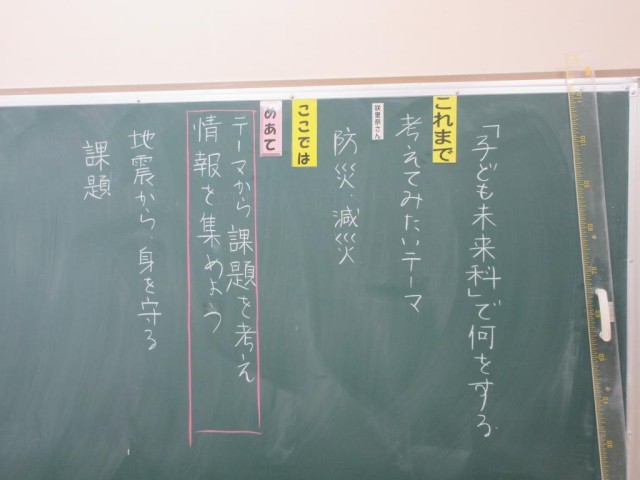 「子ども未来科」で何をする
これまで
考えてみたいテーマ
咲里奈さん
防災・減災
ここでは
めあて
テーマから課題を考え
情報を集めよう
地震から身を守る
課題